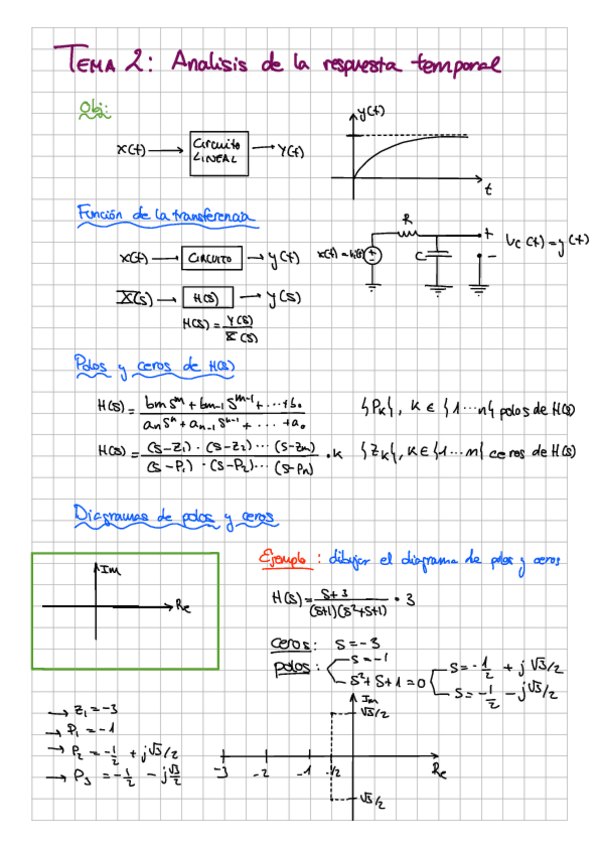 TEMA 2: Analisis de la respuesta temporal
Obj:
x(t) → Circuito LINEAL → y(t)
y(t)
t
Función de la transferencia
x(t) → CIRCUITO → y(t)
X(s) → H(s) → Y(s)
H(s) = Y(s) / X(s)
R
C
+
-
Vc(t) = y(t)
Polos y ceros de H(s)
H(s) = bm s^m + bm-1 s^m-1 + ... + b0 / an s^n + an-1 s^n-1 + ... + a0
{Pk}, k ∈ {1...n} polos de H(s)
H(s) = (s-z1)·(s-z2)...(s-zm) / (s-P1)·(s-P2)...(s-Pn) · k
{Zk}, k ∈ {1...m} ceros de H(s)
Diagramas de polos y ceros
Im
Re
Ejemplo: dibujar el diagrama de polos y ceros
H(s) = s+3 / (s+1)(s²+s+1) · 3
ceros: s = -3
polos: s = -1
s² + s + 1 = 0
s = -1/2 + j√3/2
s = -1/2 - j√3/2
→ z1 = -3
→ P1 = -1
→ P2 = -1/2 + j√3/2
→ P3 = -1/2 - j√3/2
Im
√3/2
-3 -2 -1 -1/2
Re
√3/2